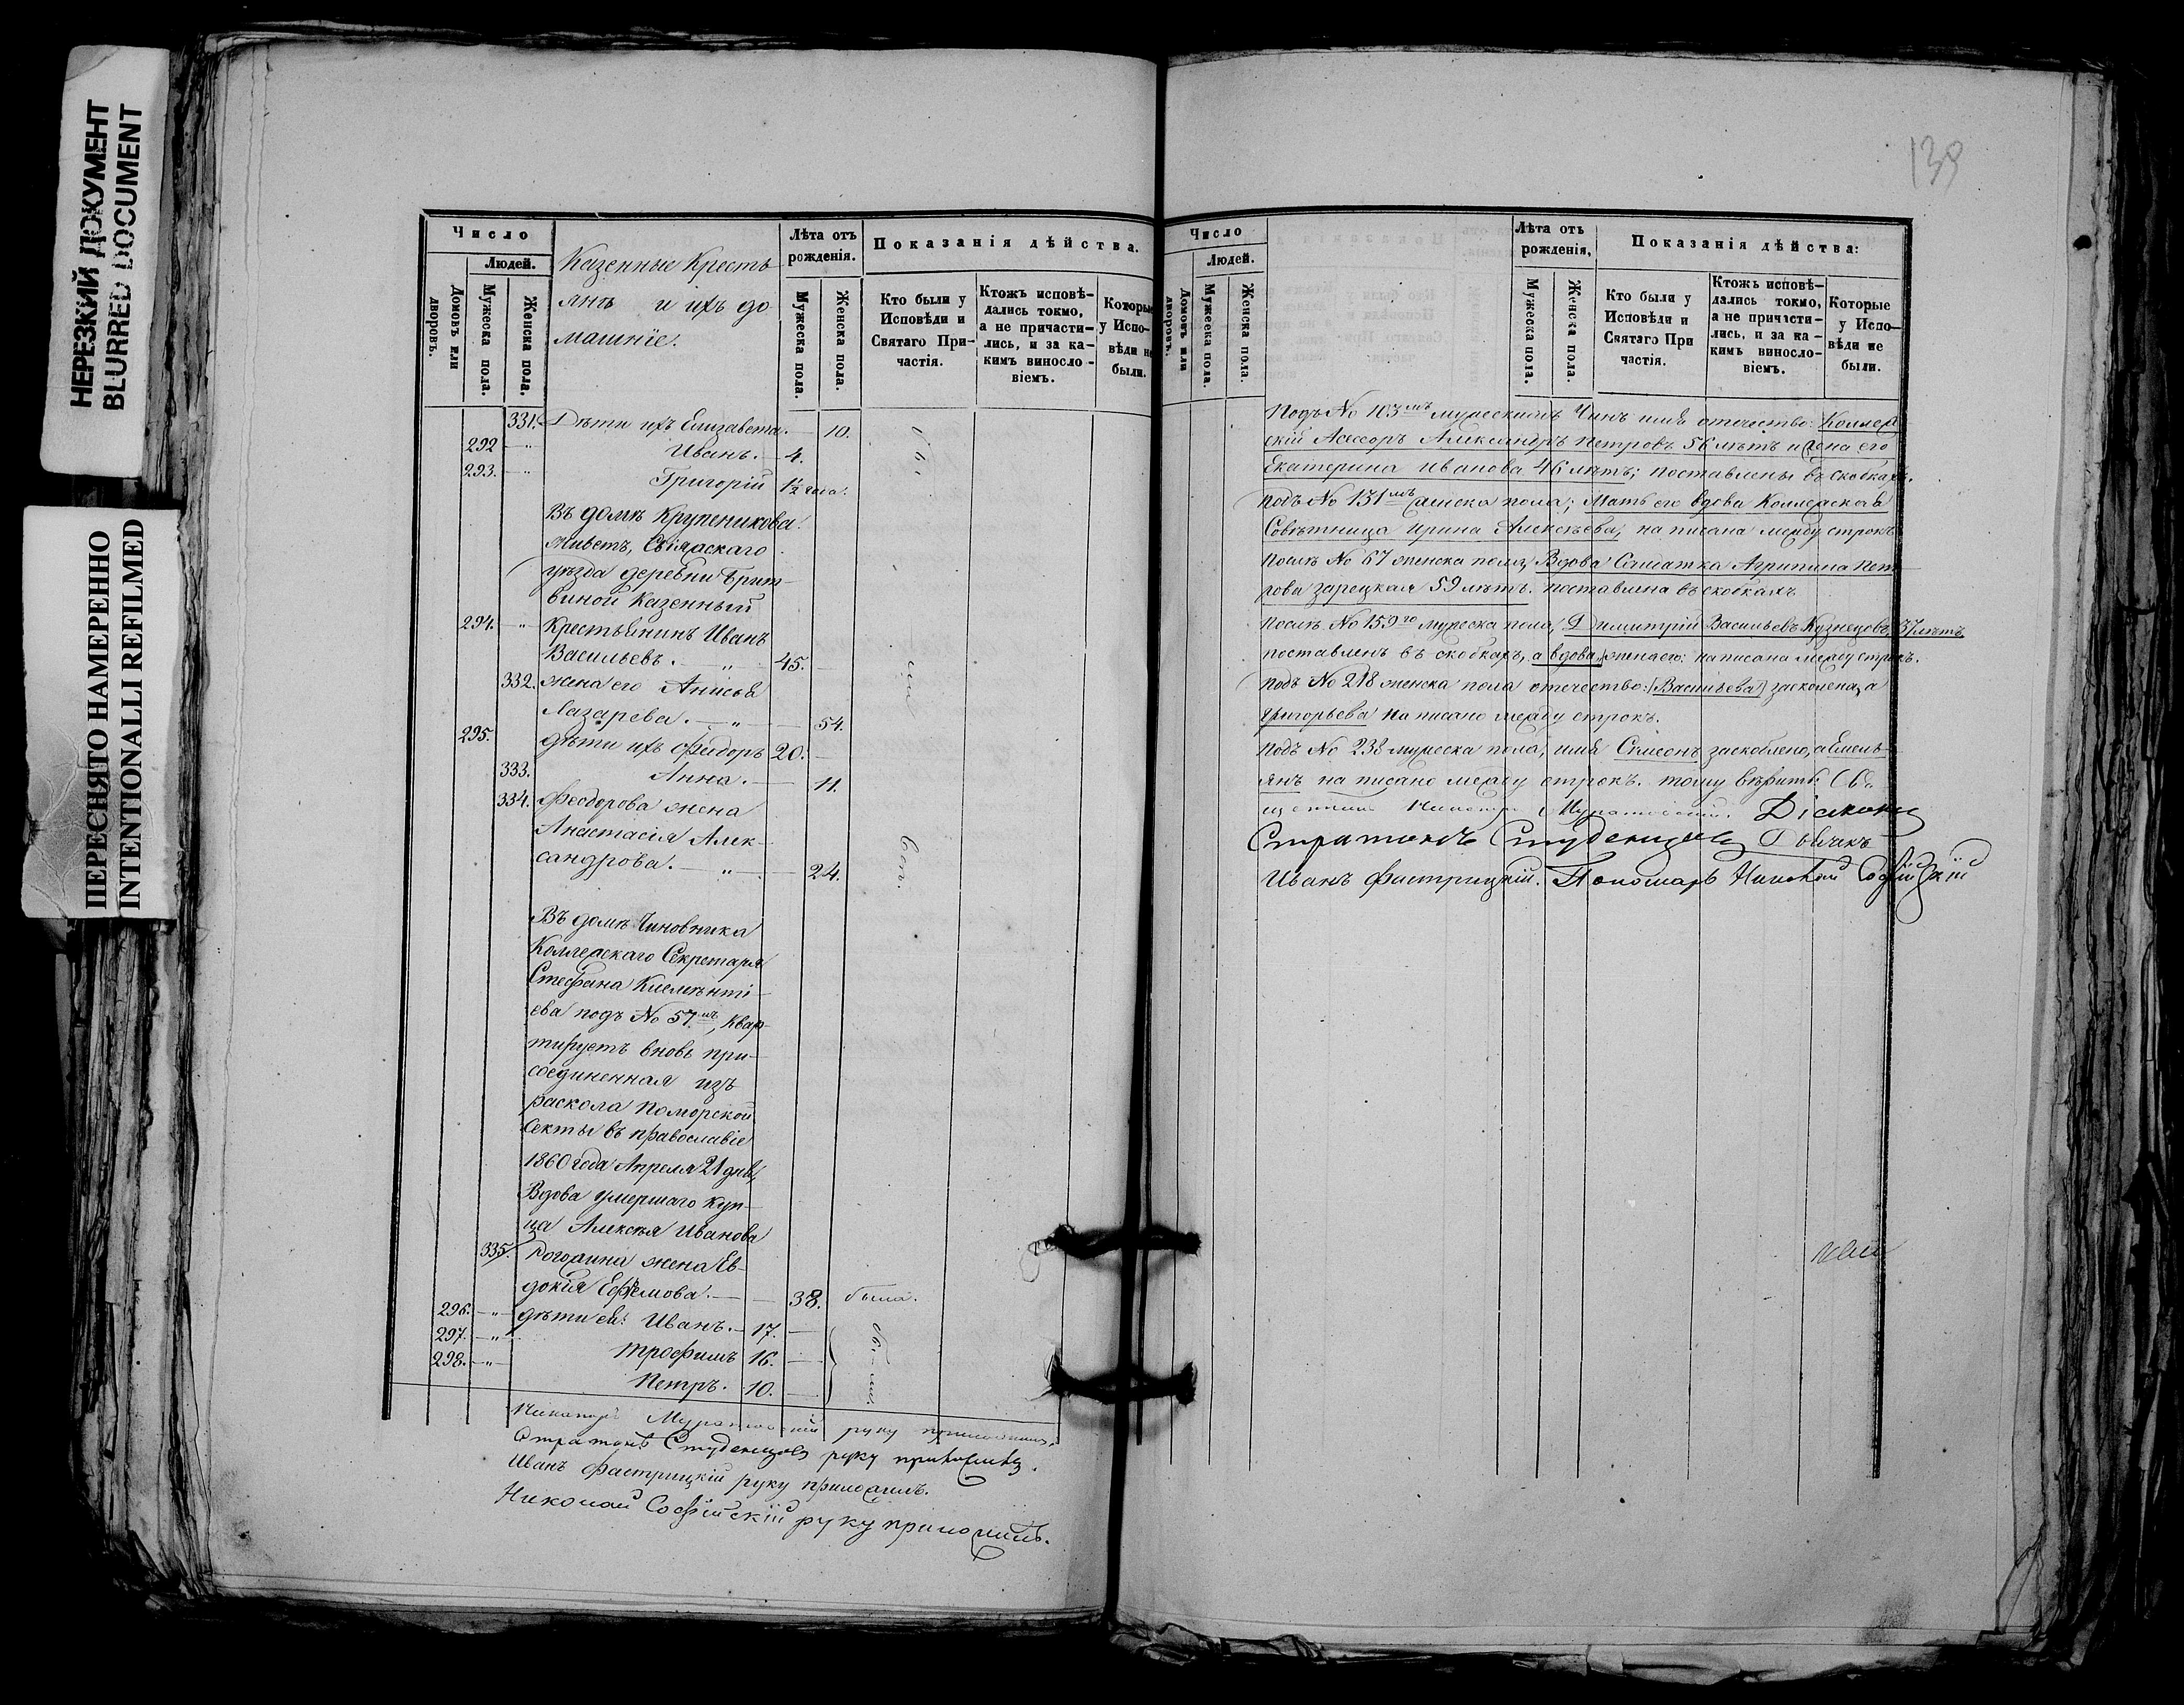 НЕРЕЗКИЙ ДОКУМЕНТ
BLURRED DOCUMENT
ПЕРЕСНЯТО НАМЕРЕННО
INTENTIONALLI REFILMED
Число
Людей.
Домовъ или дворовъ.
Мужеска пола.
Женска пола.
Казенные Кресть-
яне и ихъ до-
машніе.
Лѣта отъ рожденія.
Мужеска пола.
Женска пола.
Показанія дѣйства.
Кто были у Исповѣди и Святаго При-частія.
Ктожъ исповѣ-дались токмо, а не причасти-лись, и за ка-кимъ винословіемъ.
Которые у Испо-вѣди не были.
331. Дѣти ихъ Елизавета. — 10.
292 — " Иванъ. — 4.
293. — " Григорій 1½ года.
Въ домѣ Крупеникова
живетъ, Свіяжскаго
уѣзда деревни Брит-
виной Казенный
294. — " Крестьянинъ Иванъ
Васильевъ. — " 45. —
332. жена его Анисья
Лазарева. — " — 54.
295. дѣти ихъ Феодоръ 20. —
333. Анна. — 11.
334. Феодорова жена
Анастасія Алек-
сандрова. — " — 24.
Въ домѣ Чиновника
Коллежскаго Секретаря
Стефана Клемѣнті-
ева подъ № 57мъ, Квар-
тируетъ вновь при-
соединенная изъ
раскола Поморской
Секты въ православіе
1860 года Апреля 21 дня,
Вдова умершаго Куп-
ца Алексѣя Иванова
335. Рогожина жена Ев-
докія Ефремова. — — 38. была.
296. — " — дѣти ея: Иванъ. — 17. —
297. — " — Трофимъ 16. —
298. — " — Петръ. 10. —
руку приложилъ.
Стратонъ Студенцовъ руку приложилъ.
Иванъ Фастрицкій руку приложилъ.
Николай Софійскій руку приложилъ.
139
Число
Людей.
Домовъ или дворовъ.
Мужеска пола.
Женска пола.
Лѣта отъ рожденія,
Мужеска пола.
Женска пола.
Показанія дѣйства:
Кто были у Исповѣди и Святаго При частія.
Ктожъ исповѣ-дались токмо, а не причасти-лись, и за ка-кимъ винословіемъ.
Которые у Испо-вѣди не были.
Подъ № 103мъ мужескимъ Чинъ имя отечество: Коллеж-
скій Асессоръ Александръ Петровъ 56 лѣтъ и жена его
Екатерина Иванова 46 лѣтъ; поставлены въ скобкахъ.
Подъ № 131мъ женска пола; Мать его вдова Коллежская
Совѣтница Ирина Алексѣева, написана между строкъ
Послѣ № 67 женска пола, Вдова Солдатка Агрипина Пет-
рова Зарецкая 59 лѣтъ. поставлена въ скобкахъ
Послѣ № 159го мужеска пола, Димитрій Васильевъ Кузнецовъ 37 лѣтъ
поставленъ въ скобкахъ, а вдова, жена его: написана между строкъ.
Подъ № 218 женска пола отечество: (Васильева) заскоблена, а
Григорьева написано между строкъ.
Подъ № 238 мужеска пола, имя Симеонъ заскоблено, а Емель-
янъ написано между строкъ. тому вѣрить: Свя-
Діаконъ
Стратонъ Студенцовъ Дьячекъ
Иванъ Фастрицкій. Пономарь Николай Софійскій